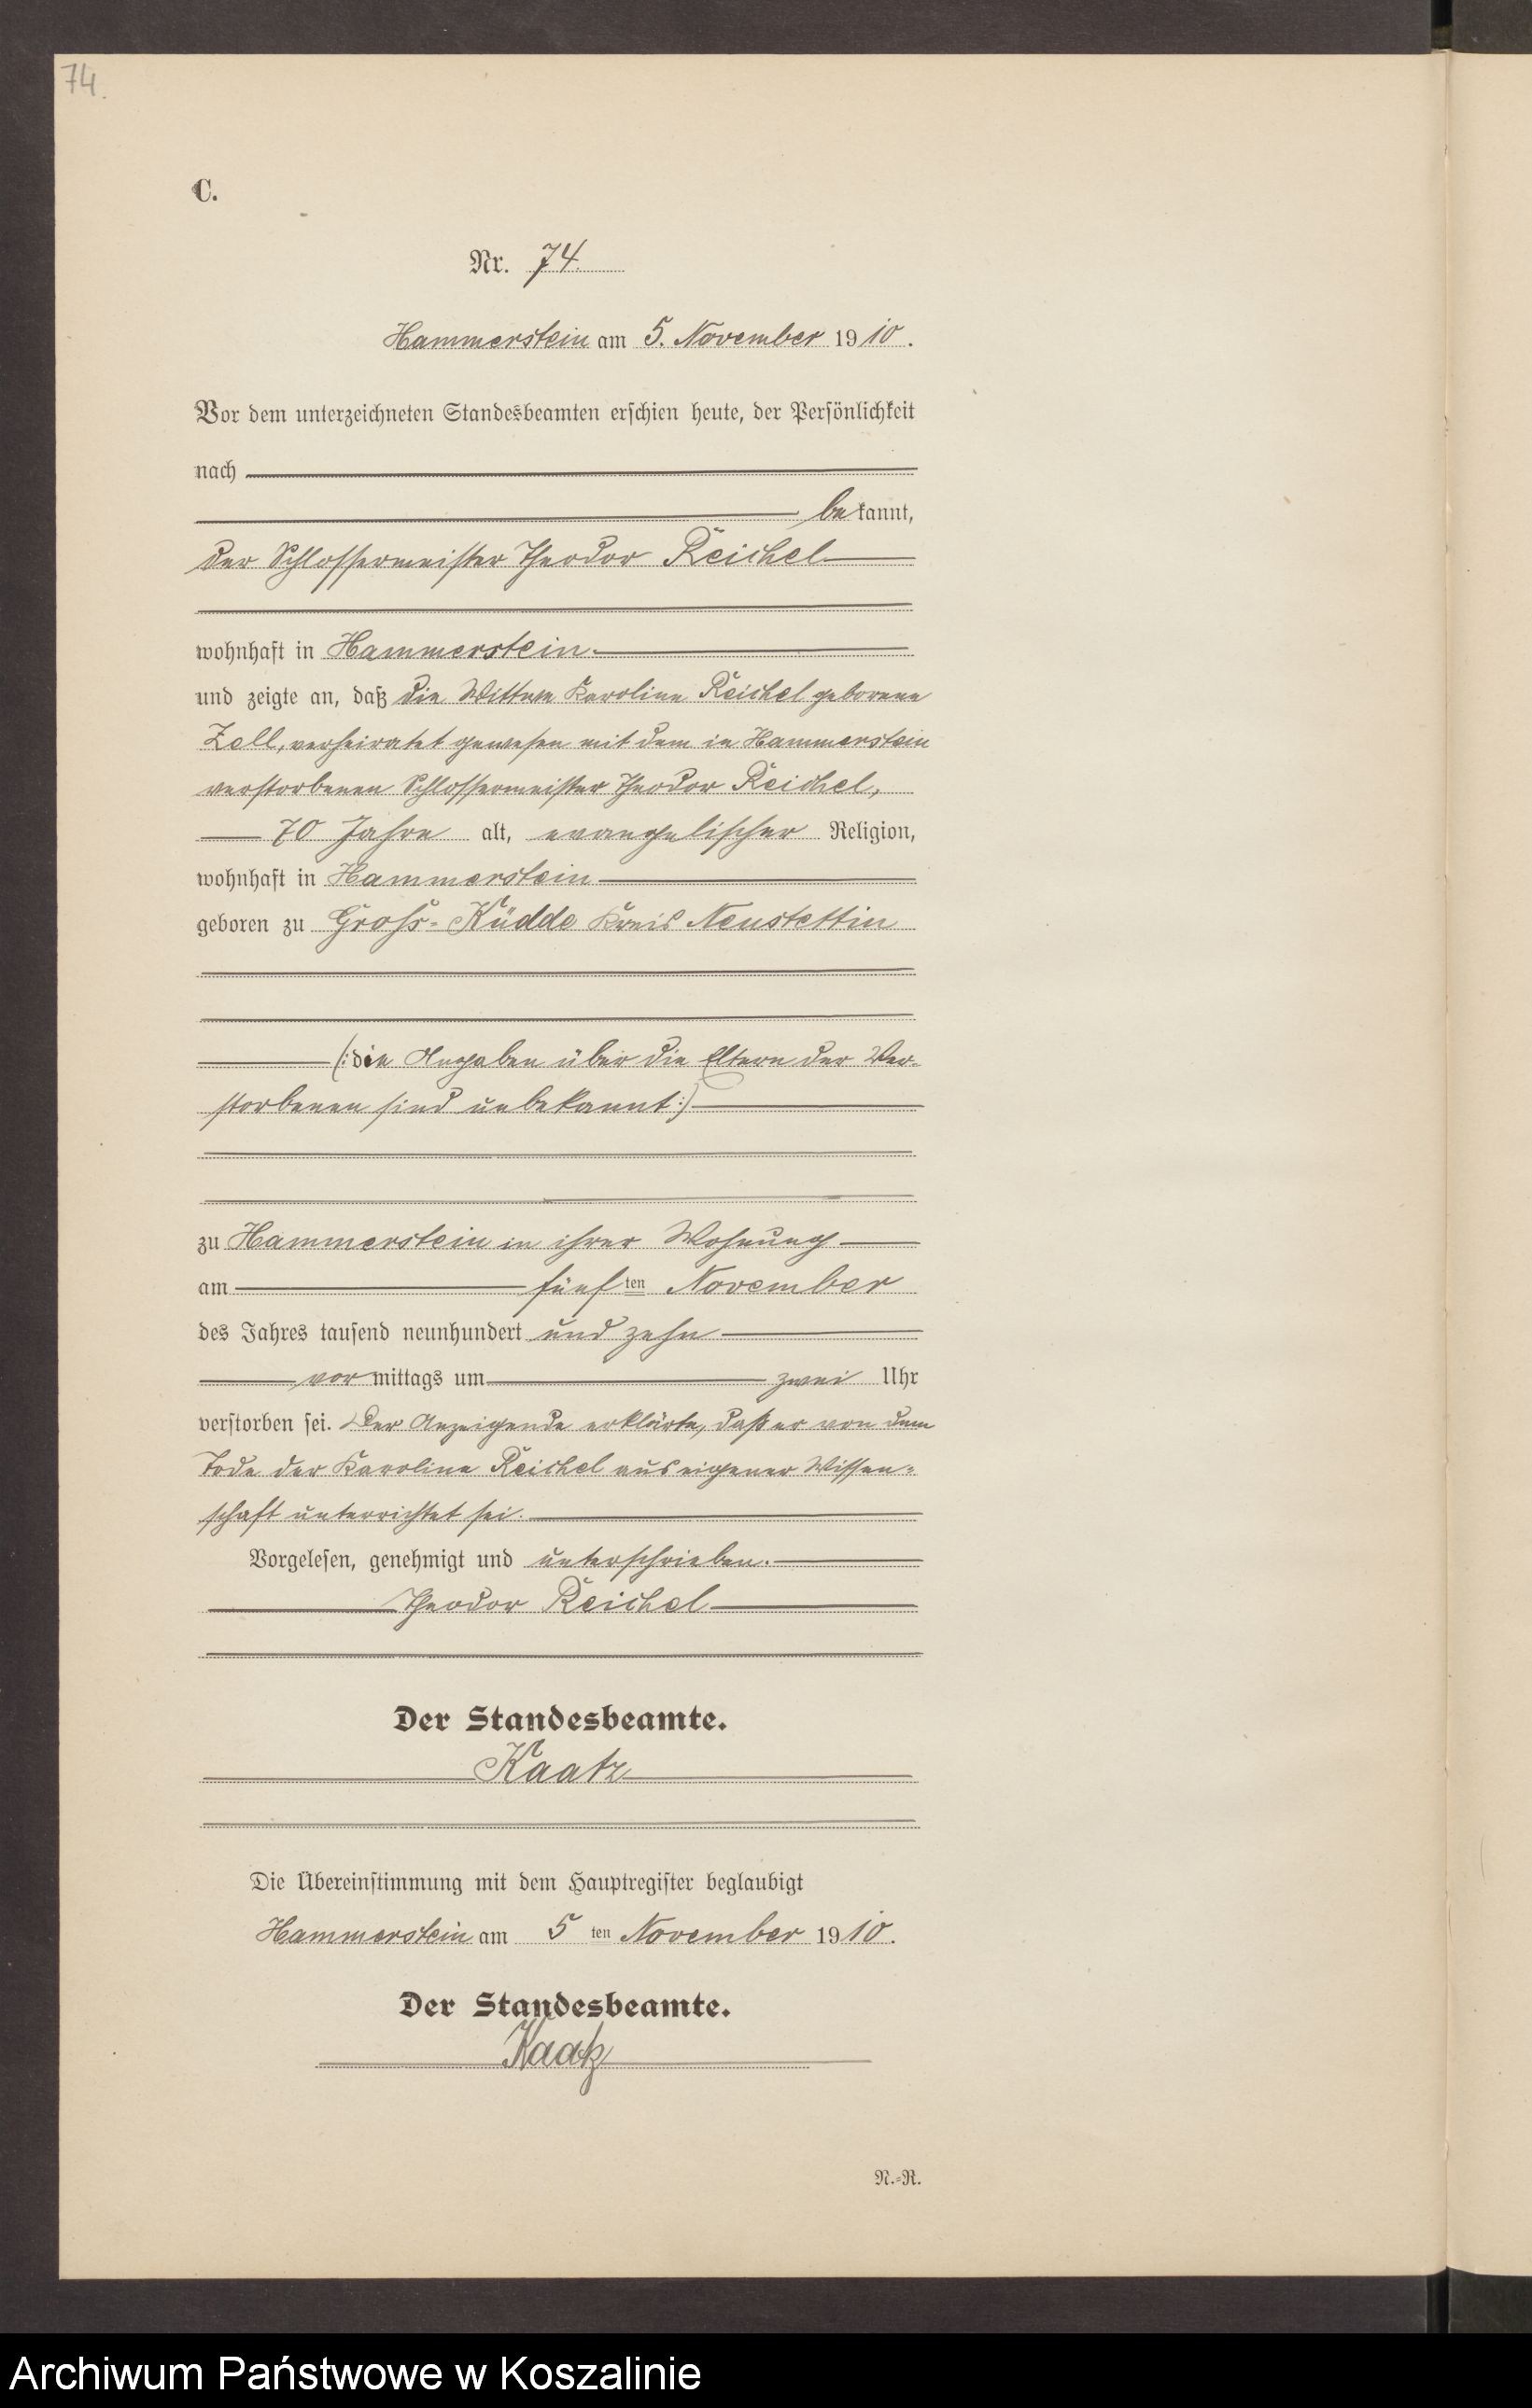 74.
C.
Nr. 74.
Hammerstein am 5. November 1910.
Vor dem unterzeichneten Standesbeamten erschien heute, der Persönlichkeit
nach
bekannt,
der Schlossermeister Theodor Reichel
wohnhaft in Hammerstein.
und zeigte an, daß die Wittwe Karoline Reichel geborene
Zell, verheiratet gewesen mit dem in Hammerstein
verstorbenen Schlossermeister Theodor Reichel,
70 Jahre alt, evangelischer Religion,
wohnhaft in Hammerstein
geboren zu Gross-Küdde Kreis Neustettin
(: die Angaben über die Eltern der Ver-
storbenen sind unbekannt :)
zu Hammerstein in ihrer Wohnung
am fünf ten November
des Jahres tausend neunhundert und zehn
vormittags um zwei Uhr
verstorben sei. Der Anzeigende erklärte, daß er von dem
Tode der Karoline Reichel aus eigener Wissen-
schaft unterrichtet sei.
Vorgelesen, genehmigt und unterschrieben.
Theodor Reichel
Der Standesbeamte.
Kaatz
Die Übereinstimmung mit dem Hauptregister beglaubigt
Hammerstein am 5 ten November 1910.
Der Standesbeamte.
Kaatz
N.-R.
Archiwum Państwowe w Koszalinie